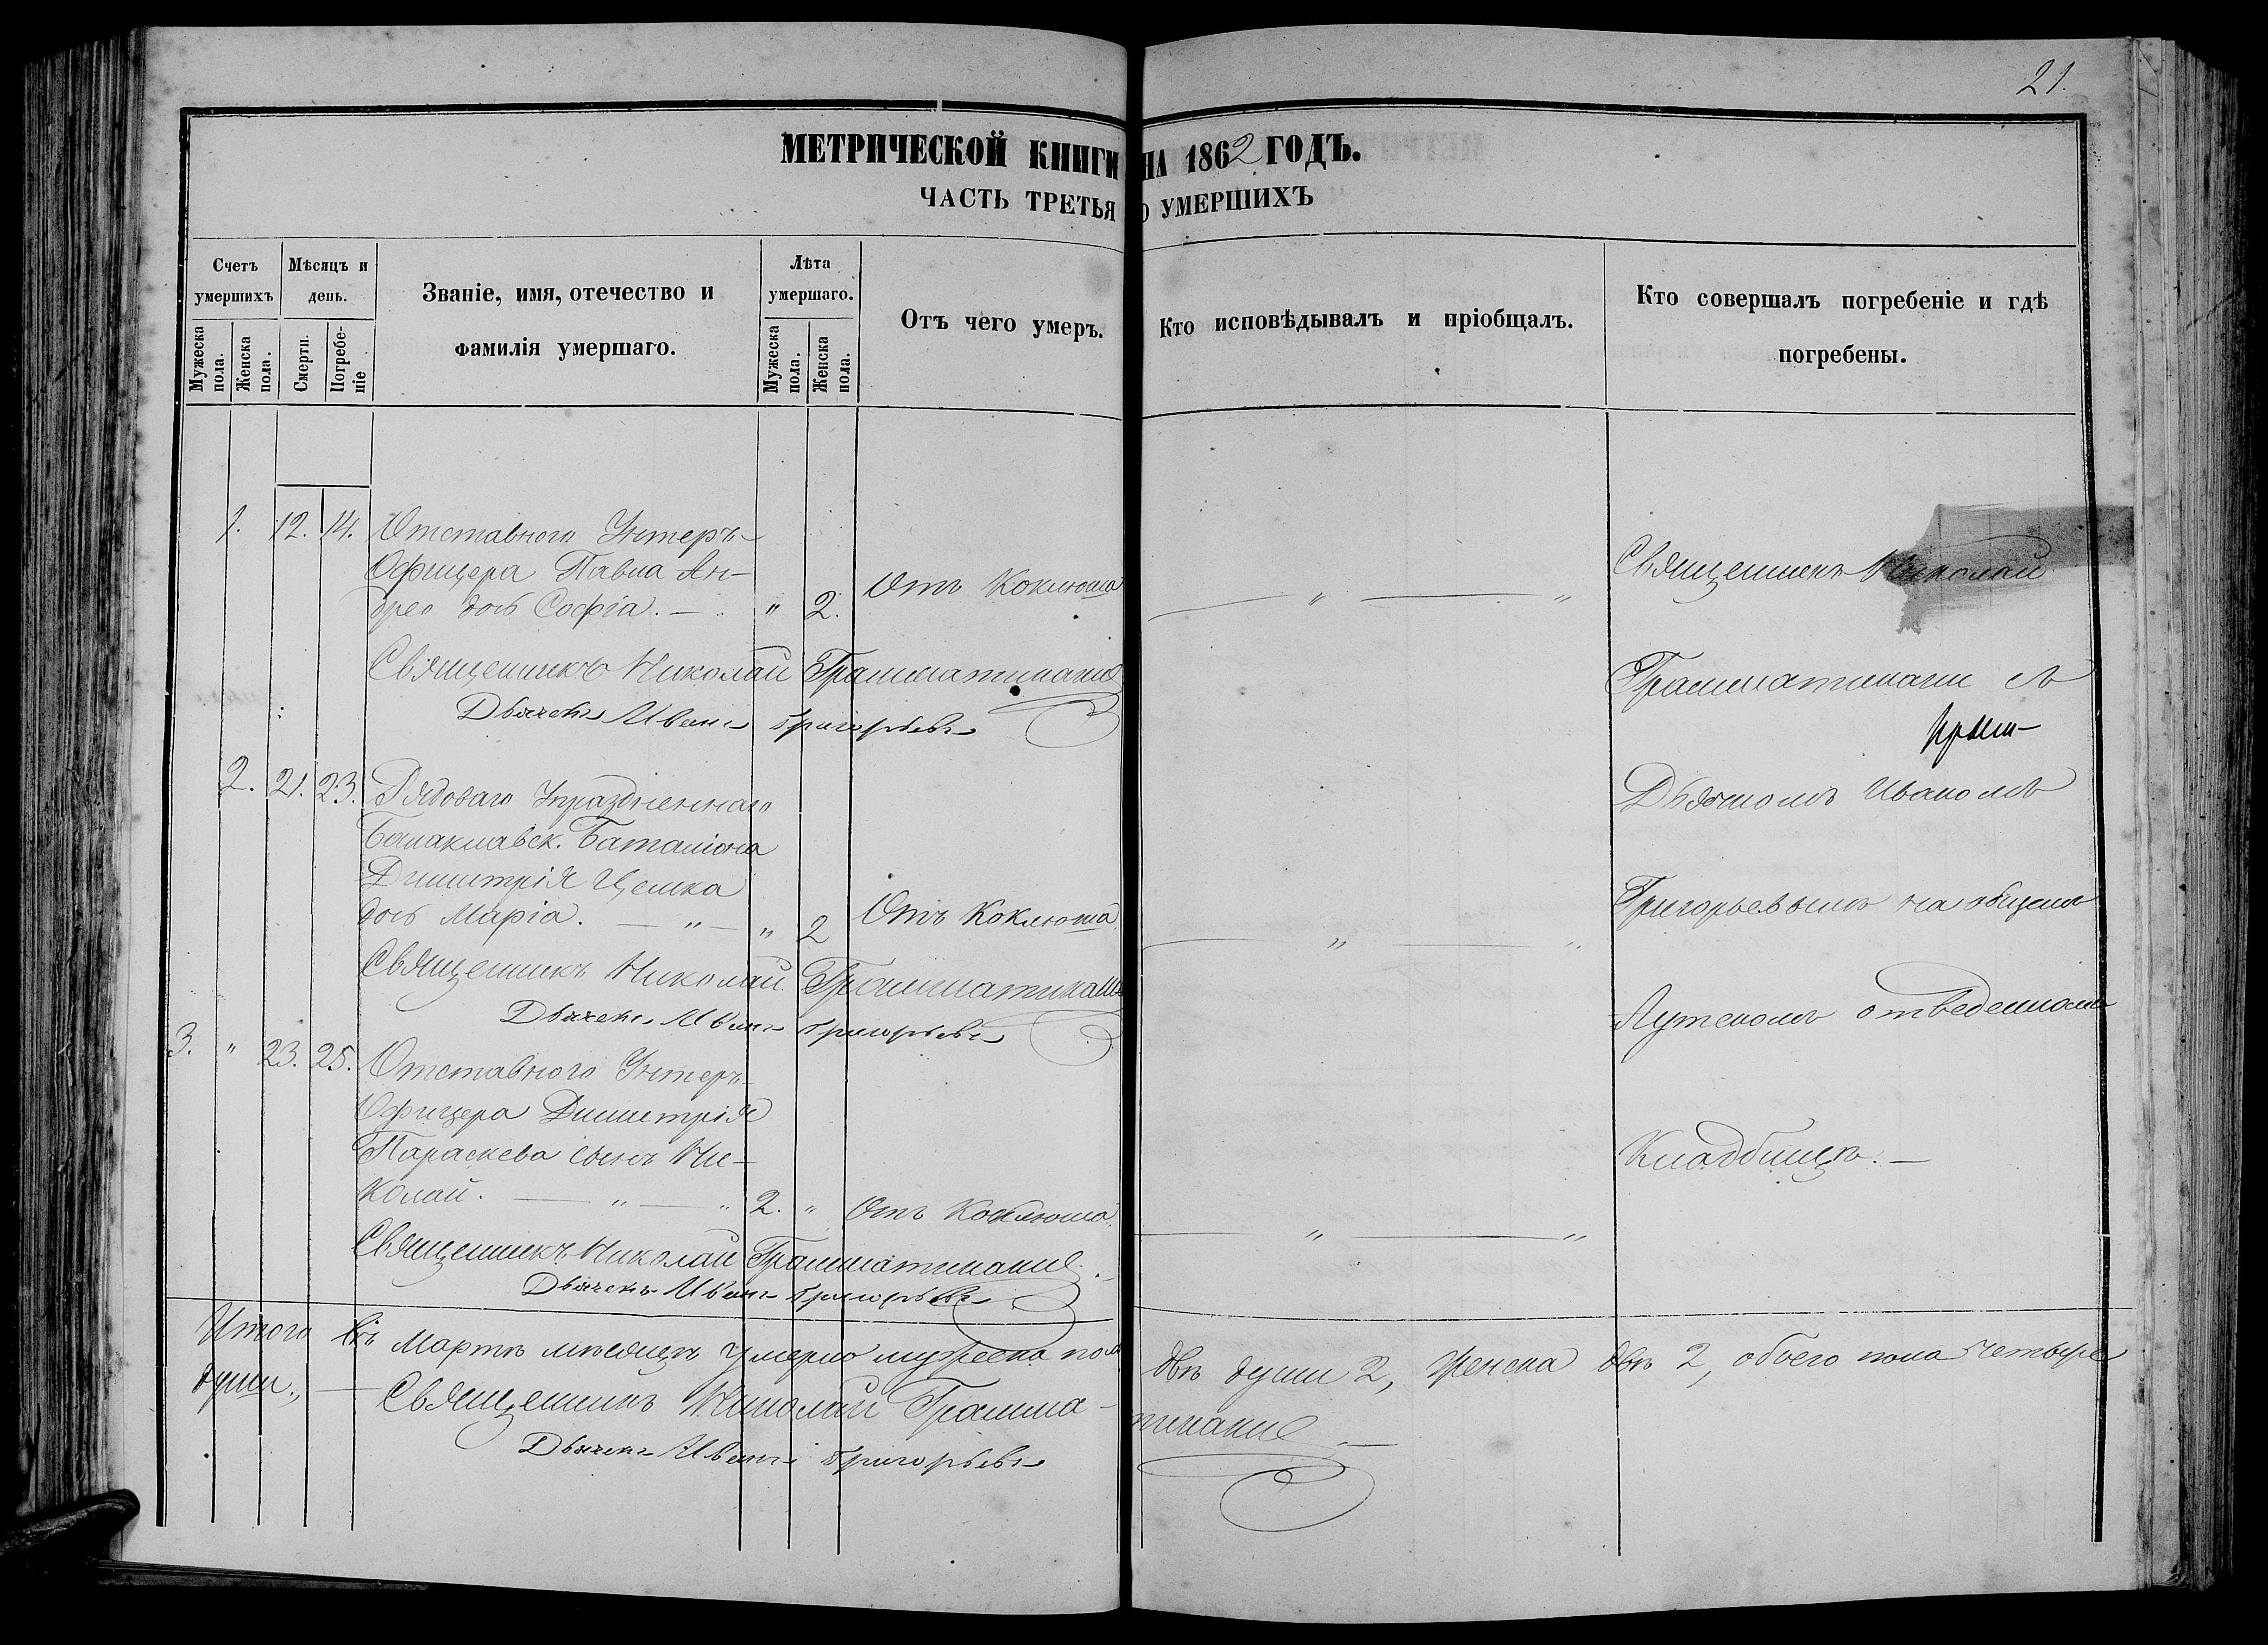 21.
МЕТРИЧЕСКОЙ КНИГИ НА 1862 ГОДЪ.
ЧАСТЬ ТРЕТЬЯ О УМЕРШИХЪ
Счетъ умершихъ
Мѣсяцъ и день.
Званіе, имя, отечество и фамилія умершаго.
Лѣта умершаго.
Отъ чего умеръ.
Кто исповѣдывалъ и пріобщалъ.
Кто совершалъ погребеніе и гдѣ погребены.
Мужеска пола.
Женска пола.
Смерти.
Погребеніе
Мужеска пола.
Женска пола.
1. 12. 14. Отставного Унтеръ-
Офицера Павла Ан-
дрео дочь Софія. — " 2. Отъ Коклюша — " — "
Священникъ Николай Грамматикаки
Дьячекъ Иванъ Григорьевъ
2. 21. 23. Рядоваго Упраздненнаго
Балаклавск. Баталіона
Димитрія
дочь Марія. — " — " 2 Отъ Коклюша — " — "
Священникъ Николай Грамматикаки
Дьячекъ Иванъ Григорьевъ
3. " 23. 25. Отставного Унтеръ-
Офицера Димитрія
Параскева сынъ Ни-
колай. — " — " 2. " Отъ Коклюша — " — "
Священникъ Николай Грамматикаки
Дьячекъ Иванъ Григорьевъ
Священникъ Николай
Грамматикаки съ
Дьячкомъ Иваномъ
Григорьевымъ на общемъ
отведенномъ
Кладбищѣ. —
Итого въ Мартѣ мѣсяцѣ умерло мужеска пола двѣ души 2, женска двѣ 2, обоего пола четыре
души., — Священникъ Николай Грамматикаки
Дьячекъ Иванъ Григорьевъ